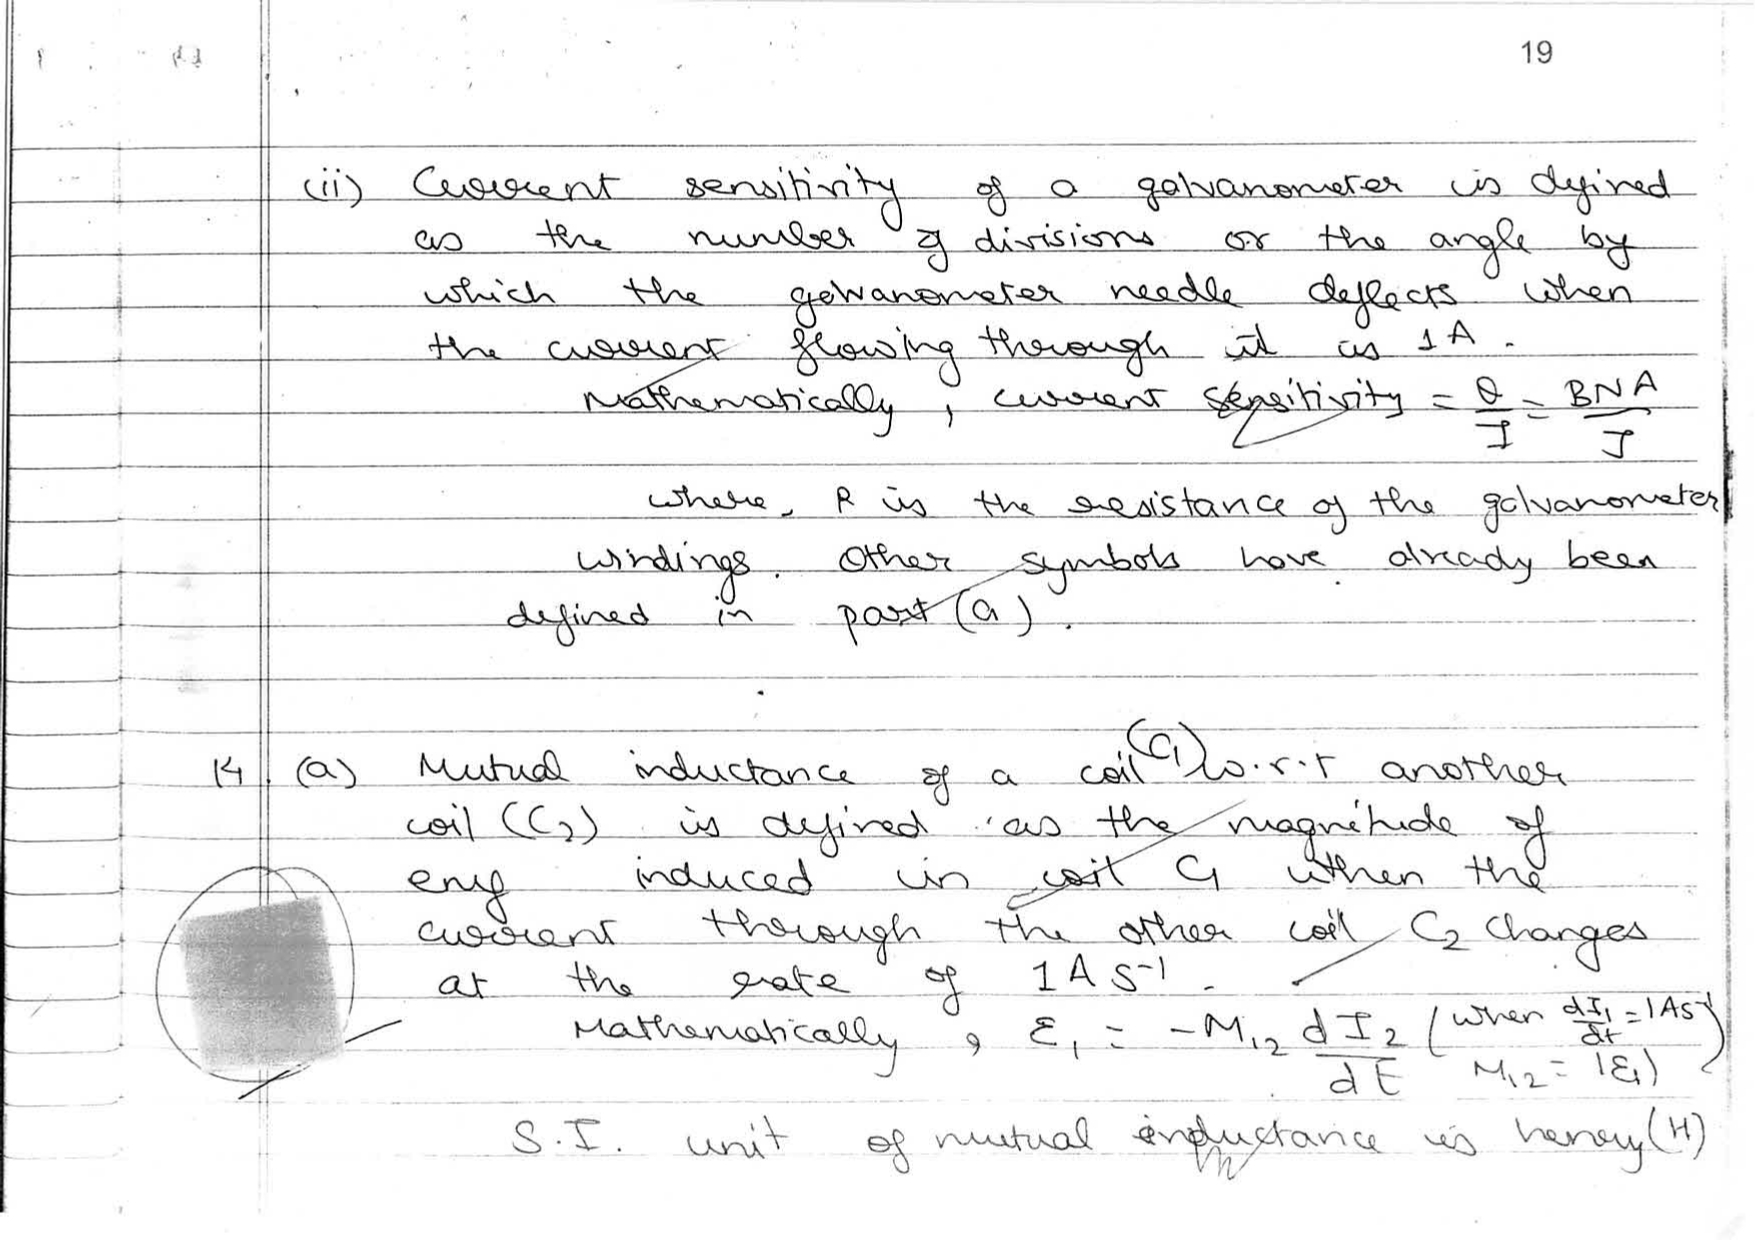 19
(ii) Current sensitivity of a galvanometer is defined
as the number of divisions or the angle by
which the galvanometer needle deflects when
the current flowing through it is 1A.
Mathematically, current sensitivity = θ/I = BNA/J
where, R is the resistance of the galvanometer
windings. Other symbols have already been
defined in part (a).
14. (a) Mutual inductance of a coil (C1) w.r.t another
coil (C2) is defined as the magnitude of
emf induced in coil C1 when the
current through the other coil C2 changes
at the rate of 1 A S⁻¹.
Mathematically, ε1 = -M12 dI2/dt (when dI1/dt = 1AS⁻¹
M12 = |ε1|)
S.I. unit of mutual inductance is henry (H)